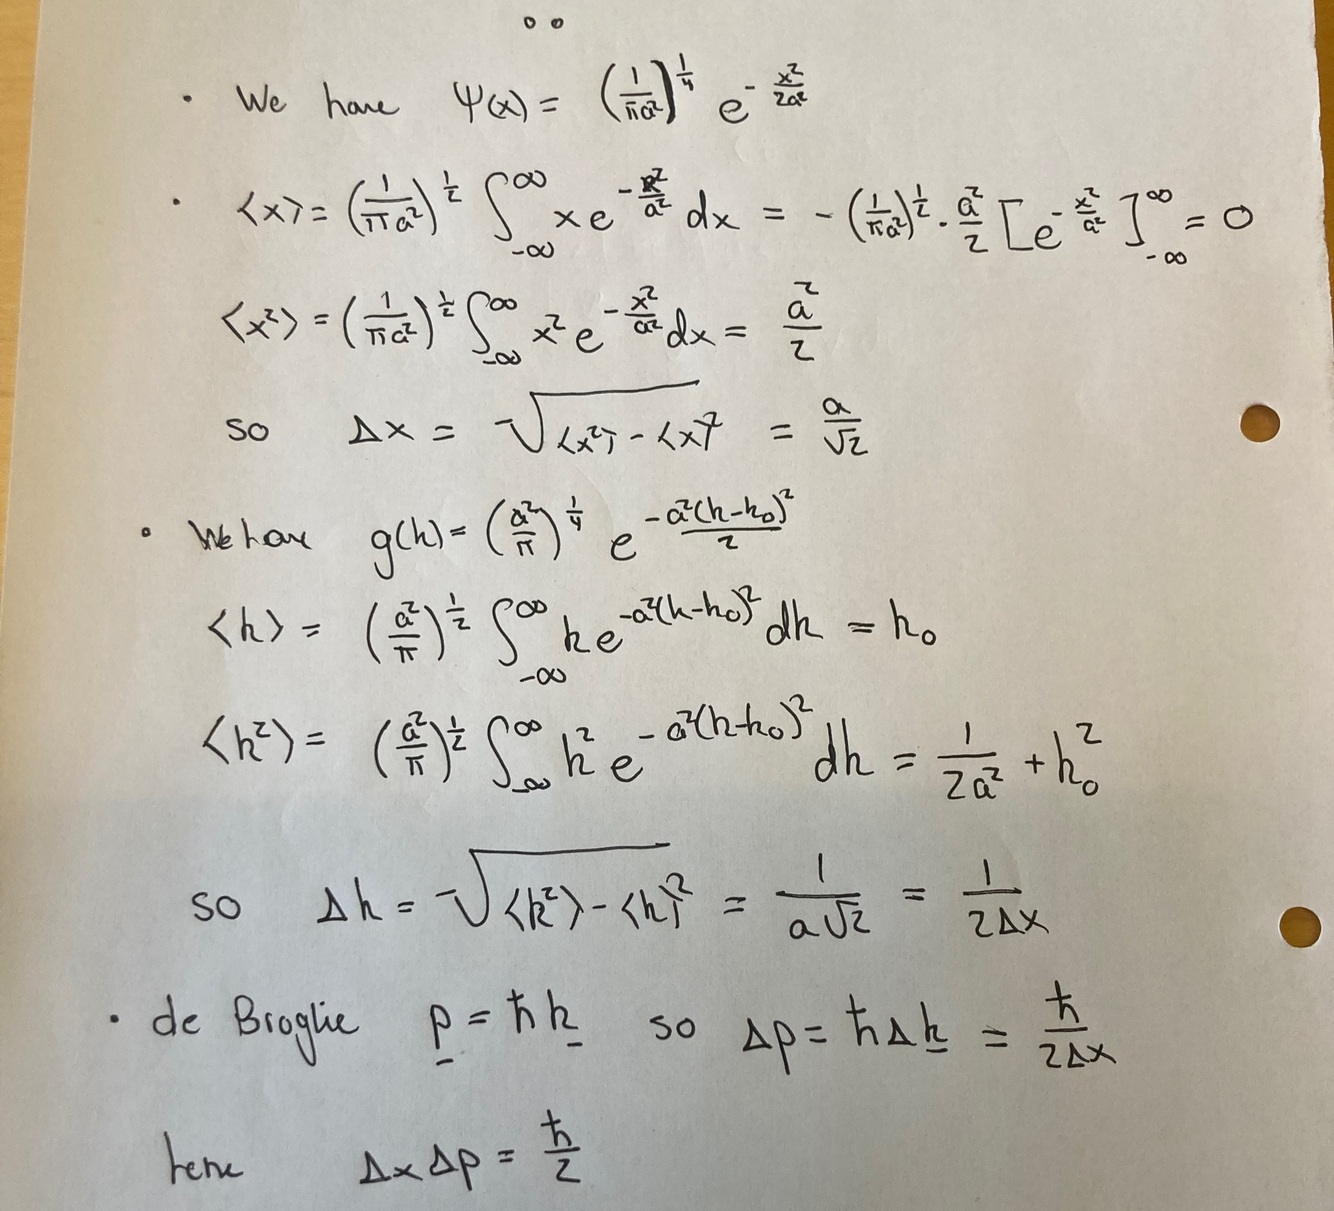 • We have ψ(x) = (1/πa²)^{1/4} e^{-x²/2a²}
• ⟨x⟩ = (1/πa²)^{1/2} ∫_{-∞}^{∞} x e^{-x²/a²} dx = -(1/πa²)^{1/2} · a²/2 [e^{-x²/a²}]_{-∞}^{∞} = 0
⟨x²⟩ = (1/πa²)^{1/2} ∫_{-∞}^{∞} x² e^{-x²/a²} dx = a²/2
so Δx = √(⟨x²⟩ - ⟨x⟩²) = a/√2
• We have g(k) = (a²/π)^{1/4} e^{-a²(k-k₀)²/2}
⟨k⟩ = (a²/π)^{1/2} ∫_{-∞}^{∞} k e^{-a²(k-k₀)²} dk = k₀
⟨k²⟩ = (a²/π)^{1/2} ∫_{-∞}^{∞} k² e^{-a²(k-k₀)²} dk = 1/2a² + k₀²
so Δk = √(⟨k²⟩ - ⟨k⟩²) = 1/a√2 = 1/2Δx
• de Broglie p = ħk so Δp = ħΔk = ħ/2Δx
hence ΔxΔp = ħ/2